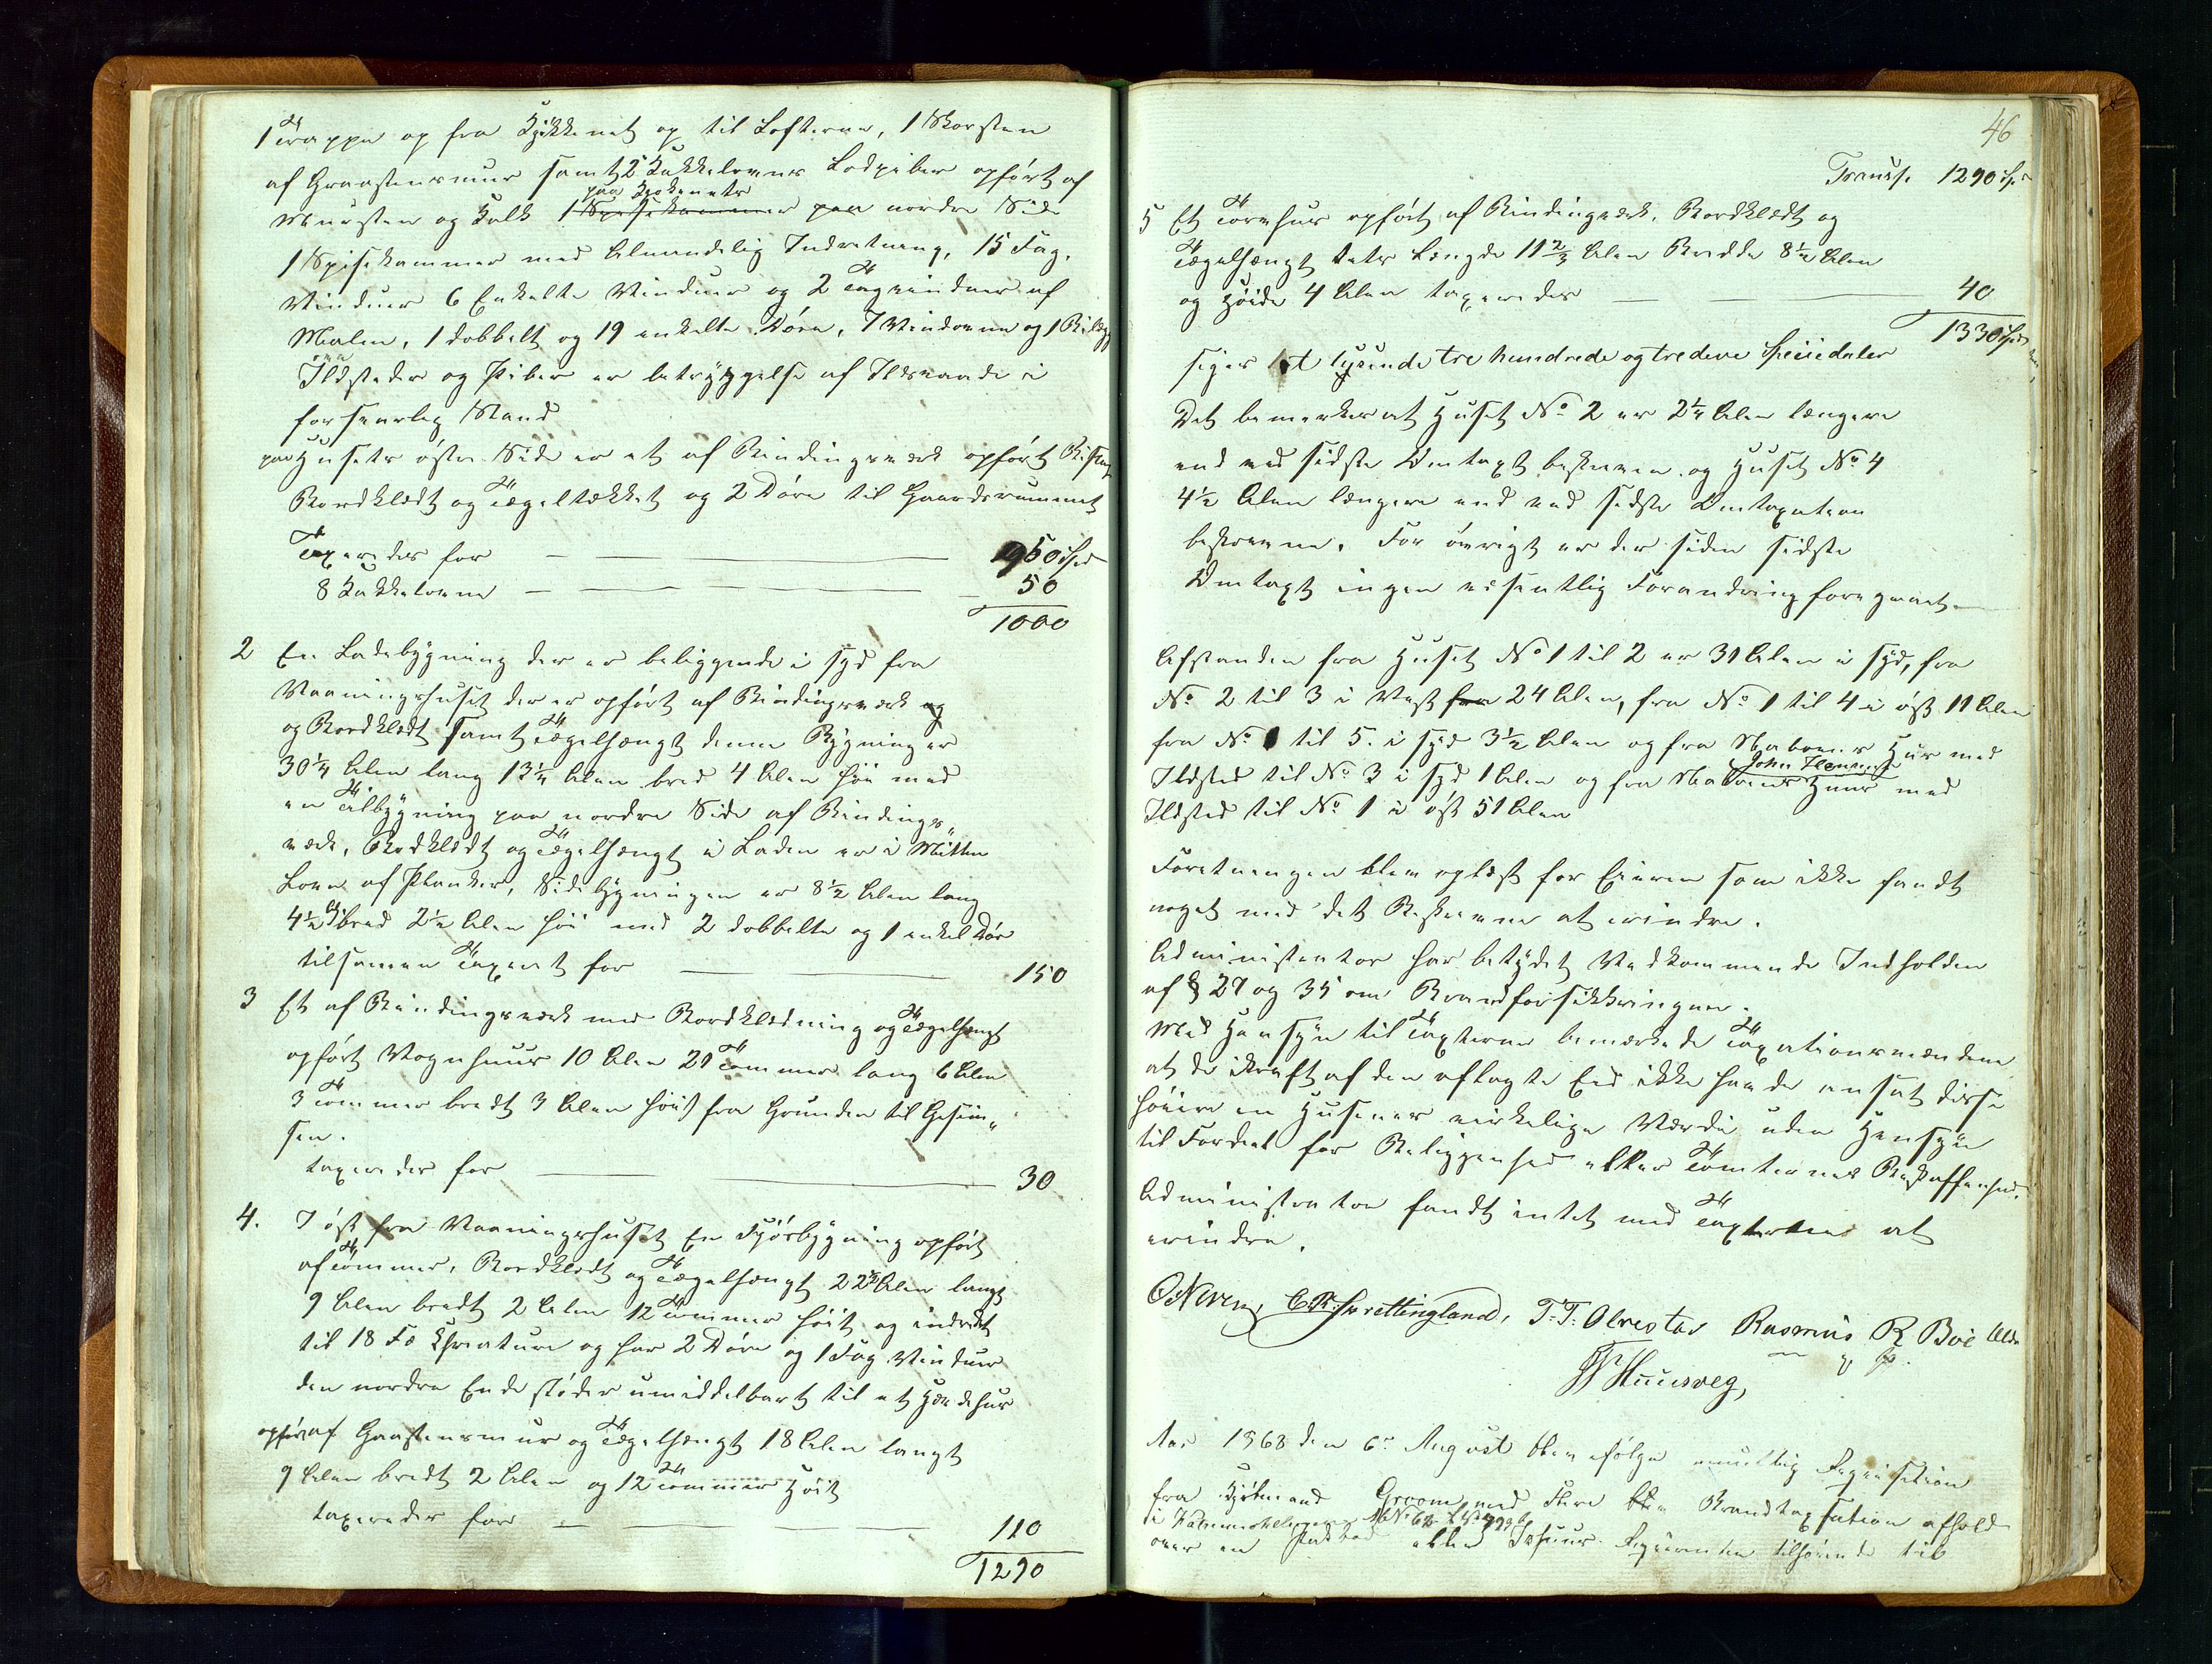 1 Trappe op fra Kjøkkenet op til Lofterne, 1 Skorsten
af Graasteensmuur samt 2 Kakkelovns Lodpiber opført af
Muursten og Kalk 1 Spisekammer paa Kjøkenets nordre Side
1 Spisekammer med almindelig Indretning, 15 Fag
Vinduer 6 Enkelte Vinduer og 2 Tagvinduer af
Malin, 1 dobbelt og 19 enkelte Døre, 7 Vindovne og 1
Ildsteder og Piber er betryggelse af Ildsvaade i
forsvarlig Stand
paa Husets østre Side er et af Bindingsværk opført
Bordklædt og Tægeltækket og 2 Døre til Gaardsrummet
Taxeredes for 950 Spd
8 Kakkelovne 50
1000
2 En Ladebygning der er beliggende i Syd fra
Vaaningshuset der er opført af Bindingsværk og
og Bordklædt samt Tægelhængt denne Bygning er
30 1/4 Alen lang 13 1/4 Alen bred 4 Alen høi med
en Tilbygning paa nordre Side af Bindings„
værk, Bordklædt og Tægelhængt i Laden er i Mitten
Love af Planker, Sidebygningen er 8 1/2 Alen lang
4 1/2 Al bred 2 1/2 Alen høi med 2 dobbelte og 1 enkel Dør
tilsamen Taxeret for 150
3 Et af Bindingsværk med Bordklædning og Tægelhængt
opført Vognhuus 10 Alen 21 Tommer lang 6 Alen
3 Tommer bredt 3 Alen høit fra Grunden til Gesim„
sen.
taxeredes for 30
4. I øst fra Vaaningshuset En Fjøsbygning opført
af Tømmer, Bordklædt og Tægelhængt 22 1/2 Alen langt
9 Alen bredt 2 Alen 12 Tommer høit og indredt
til 18 Fæ Khreature og har 2 Døre og 1 Fag Vinduer
den nordre Ende støder umiddelbart til et Hæstehus
opført af Graasteensmuur og Tægelhængt 18 Alen langt
9 Alen bredt 2 Alen og 12 Tommer Høit
taxeredes for 110
1290
46
Transp. 1290 Spd
5 Et Tørvhus opført af Bindingværk, Bordklædt og
Tægelhængt dets Længde 11 2/3 Alen Bredde 8 1/2 Alen
og Høide 4 Alen taxeredes 40
1330 Spd
siger Et tysende tre hundrede og tredeve Speciedaler
Det bemerkes at Huset No 2 er 2 1/4 Alen længere
end ved sidste Omtaxt beskreven og Huset No 4
4 1/2 Alen længere end ved sidste Omtaxation
beskrevne. For øvrigt er der siden sidste
Omtaxt ingen væsentlig Forandring foregaaet.
Afstanden fra Huset No 1 til 2 er 31 Alen i Syd, fra
No 2 til 3 i Vest fra 24 Alen, fra No 1 til 4 i øst 11 Alen
fra No 1 til 5. i Syd 3 1/2 Alen og fra Naboens Hus med
Ildsted til No 3 i Syd 1 Alen og fra Naboens John Huus med
Ildsted til No 1 i øst 51 Alen
Foretningen blev oplæst for Eieren som ikke fandt
noget med det Beskrevne at erindre.
Administrator har betydet Vedkommende Indholden
af § 27 og 35 om Brandforsikkringen.
Med Hensyn til Taxterne bemærkede Taxationsmændene
at de i Kraft af den aflagte Eed ikke havde ansat disse
høiere en Husenes virkelige Værdi uden Hensyn
til Fordeel for Beliggenhed eller Tomternes Beskaffenhed.
Administrator fandt intet med Taxterne at
erindre.
O Neven, C. R. Svrettingland, T. T. Olrestad Rasmus R Boe
Huusveg,
Aar 1868 den 6te August blev ifølge muntlig Reqvisition
fra Kjøbmand Groom med Flere blev Brandtaxsation afholdt
over en eller Søhuus Reqvirenten tilhørende til